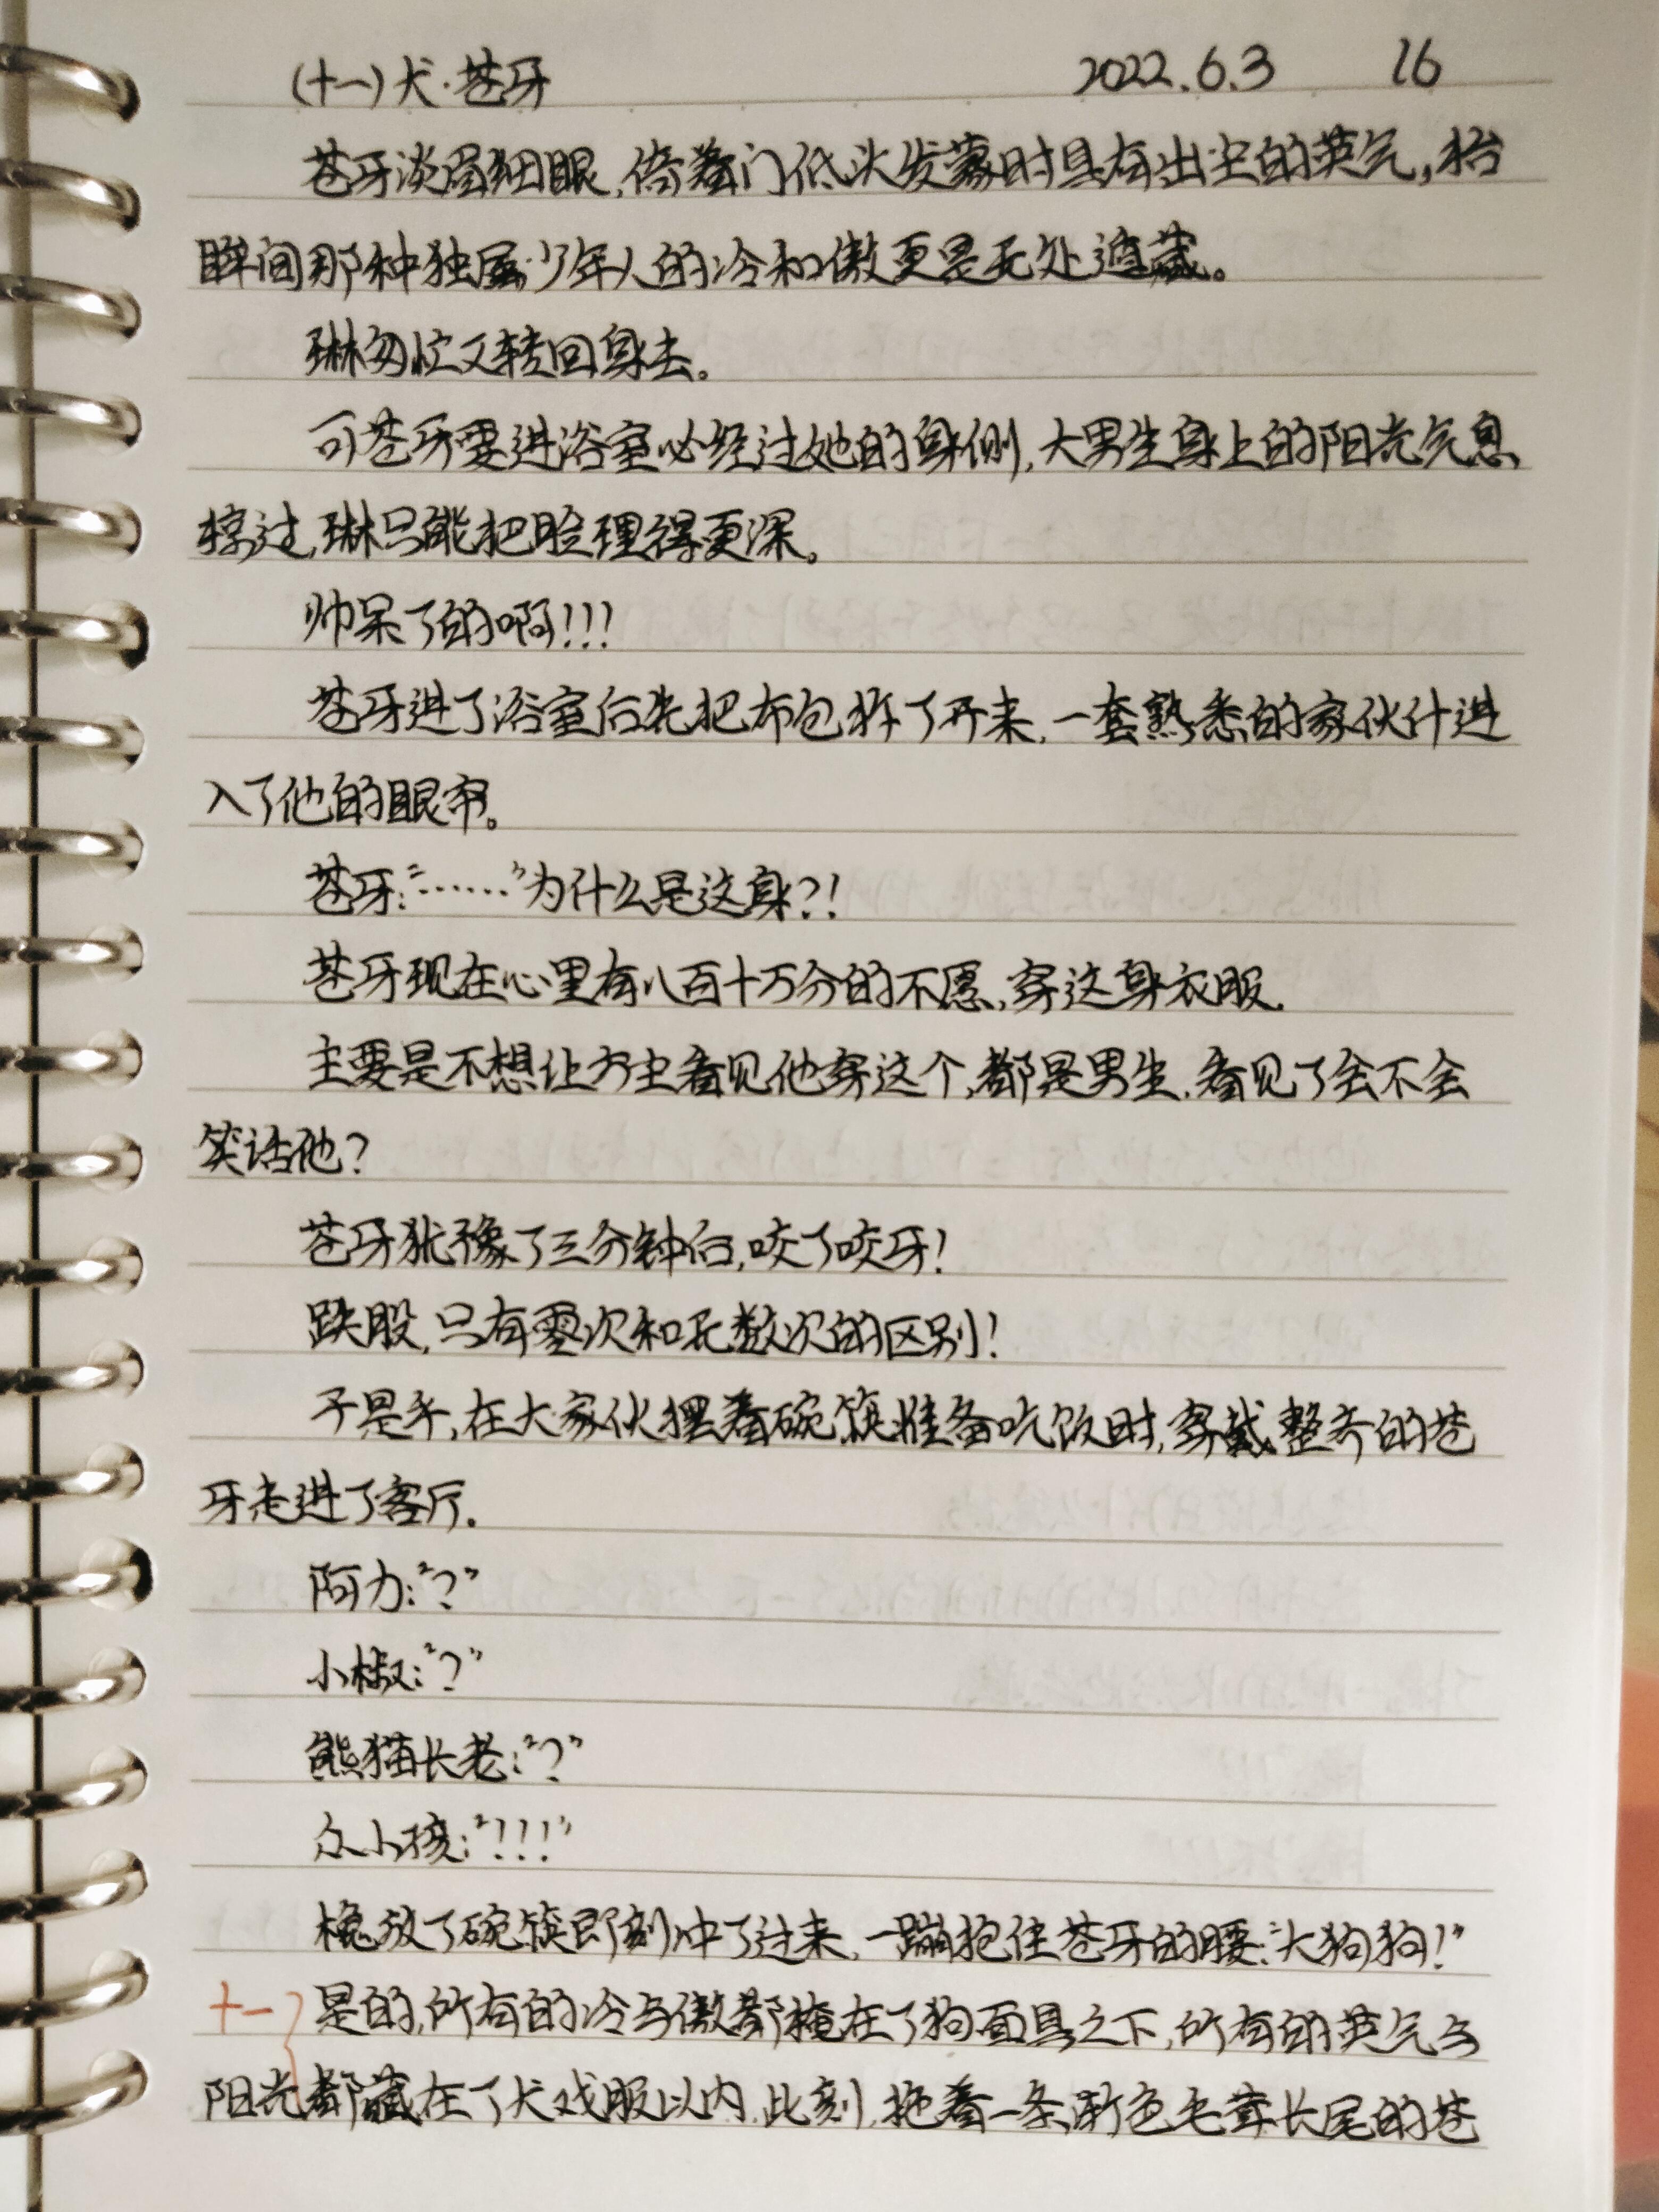 (十一)犬·苍牙 2022.6.3 16
苍牙淡眉细眼,倚着门低头发蒙时具有出尘的英气,抬
眸间那种独属少年人的冷和傲更是无处遮藏。
琳匆忙又转回身去。
可苍牙要进浴室必经过她的身侧,大男生身上的阳光气息
掠过,琳只能把脸埋得更深。
帅呆了的啊!!!
苍牙进了浴室后先把布包拆了开来,一套熟悉的家伙什进
入了他的眼帘。
苍牙:“······”为什么是这身?!
苍牙现在心里有八百十万分的不愿,穿这身衣服.
主要是不想让方尘看见他穿这个,都是男生,看见了会不会
笑话他?
苍牙犹豫了三分钟后,咬了咬牙!
跌股,只有零次和无数次的区别!
于是乎,在大家伙摆着碗筷准备吃饭时,穿戴整齐的苍
牙走进了客厅.
阿力:“?”
小椒:“?”
熊猫长老:“?”
众小孩:“!!!”
放了碗筷即刻冲了过来,一蹦抱住苍牙的腰:“大狗狗!”
十一 是的,所有的冷与傲都掩在了狗面具之下,所有的英气与
阳光都藏在了犬戏服以内,此刻,拖着一条渐色毛茸长尾的苍